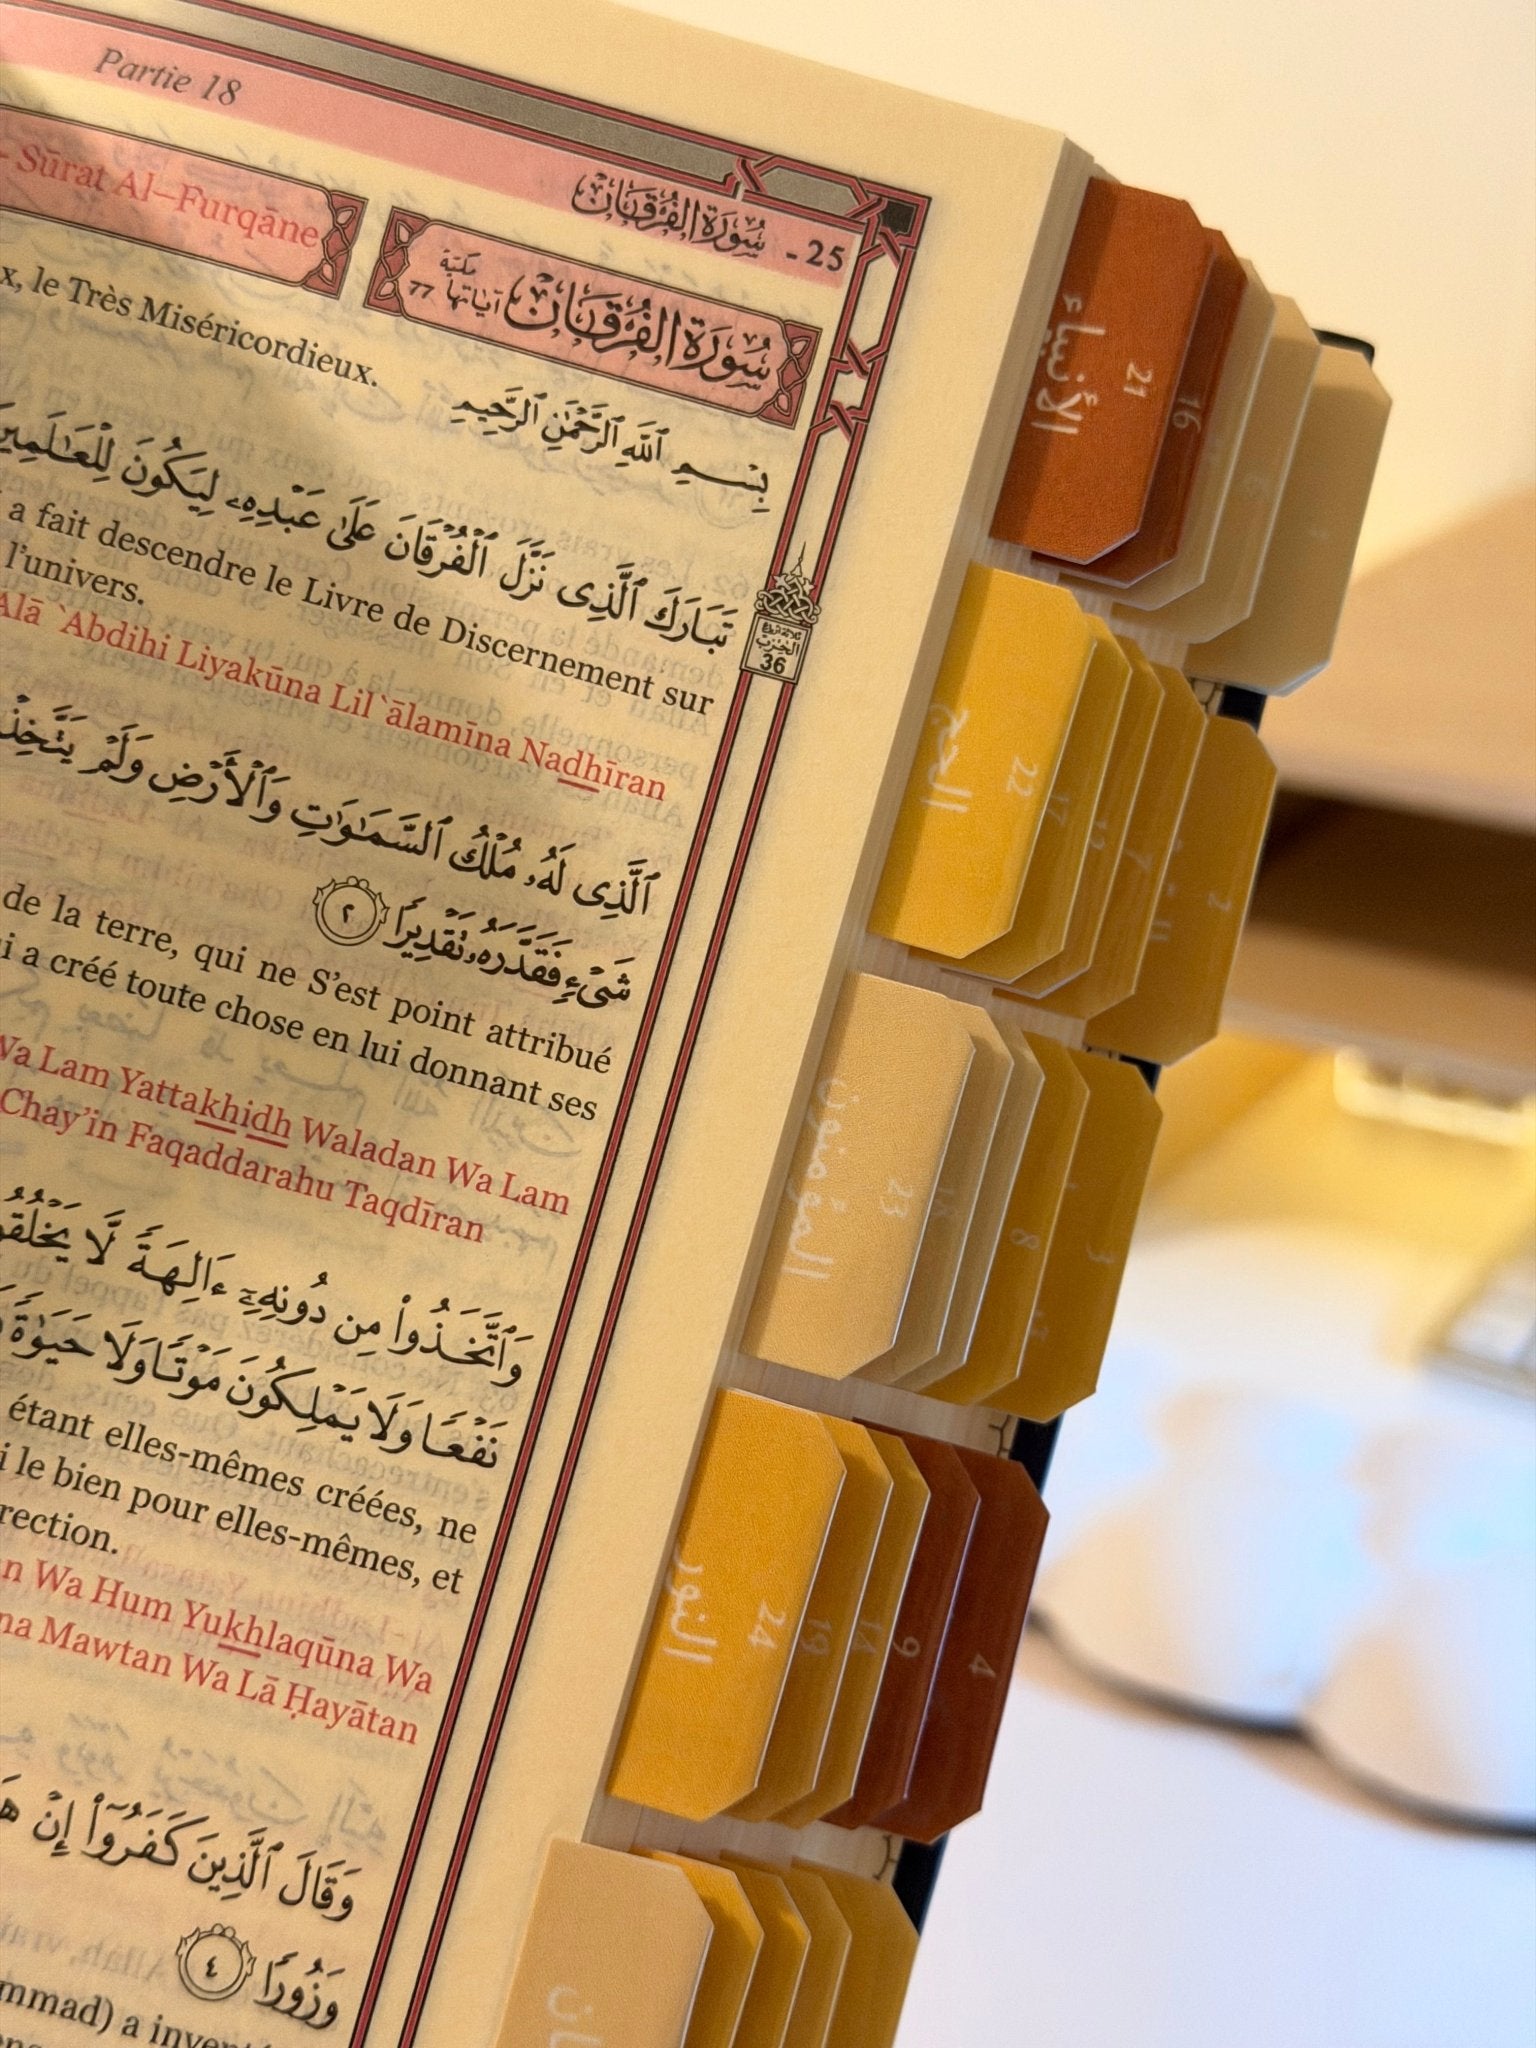 Partie 18
سُورَةُ الفُرْقَان - 25
- Sūrat Al–Furqāne
سُورَةُ الفُرْقَان آياتها 77 مكية
le Très Miséricordieux.
بِسْمِ ٱللَّهِ ٱلرَّحْمَٰنِ ٱلرَّحِيمِ
تَبَارَكَ ٱلَّذِى نَزَّلَ ٱلْفُرْقَانَ عَلَىٰ عَبْدِهِۦ لِيَكُونَ لِلْعَـٰلَمِينَ
a fait descendre le Livre de Discernement sur
l'univers.
Alā `Abdihi Liyakūna Lil`ālamīna Nadhīran
ٱلَّذِى لَهُۥ مُلْكُ ٱلسَّمَـٰوَٰتِ وَٱلْأَرْضِ وَلَمْ يَتَّخِذْ
شَىْءٍ فَقَدَّرَهُۥ تَقْدِيرًا ٢
de la terre, qui ne S'est point attribué
a créé toute chose en lui donnant ses
Wa Lam Yattakhidh Waladan Wa Lam
Chay'in Faqaddarahu Taqdīran
وَٱتَّخَذُوا۟ مِن دُونِهِۦٓ ءَالِهَةً لَّا يَخْلُقُونَ
نَفْعًا وَلَا يَمْلِكُونَ مَوْتًا وَلَا حَيَوٰةً
étant elles-mêmes créées, ne
le bien pour elles-mêmes, et
rection.
Wa Hum Yukhlaqūna Wa
Mawtan Wa Lā Ḥayātan
وَقَالَ ٱلَّذِينَ كَفَرُوٓا۟ إِنْ
وَزُورًا ٤
mmad) a
الحزب
36
الأنبياء 21
16
الحج 22
17
12
7
2
المؤمنون 23
18
8
3
النور 24
19
14
9
4